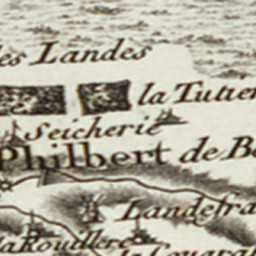 des Landes
la Tutier
Seicherie
Philbert de Bo
Landefra
la Rouillere
la Cougrat